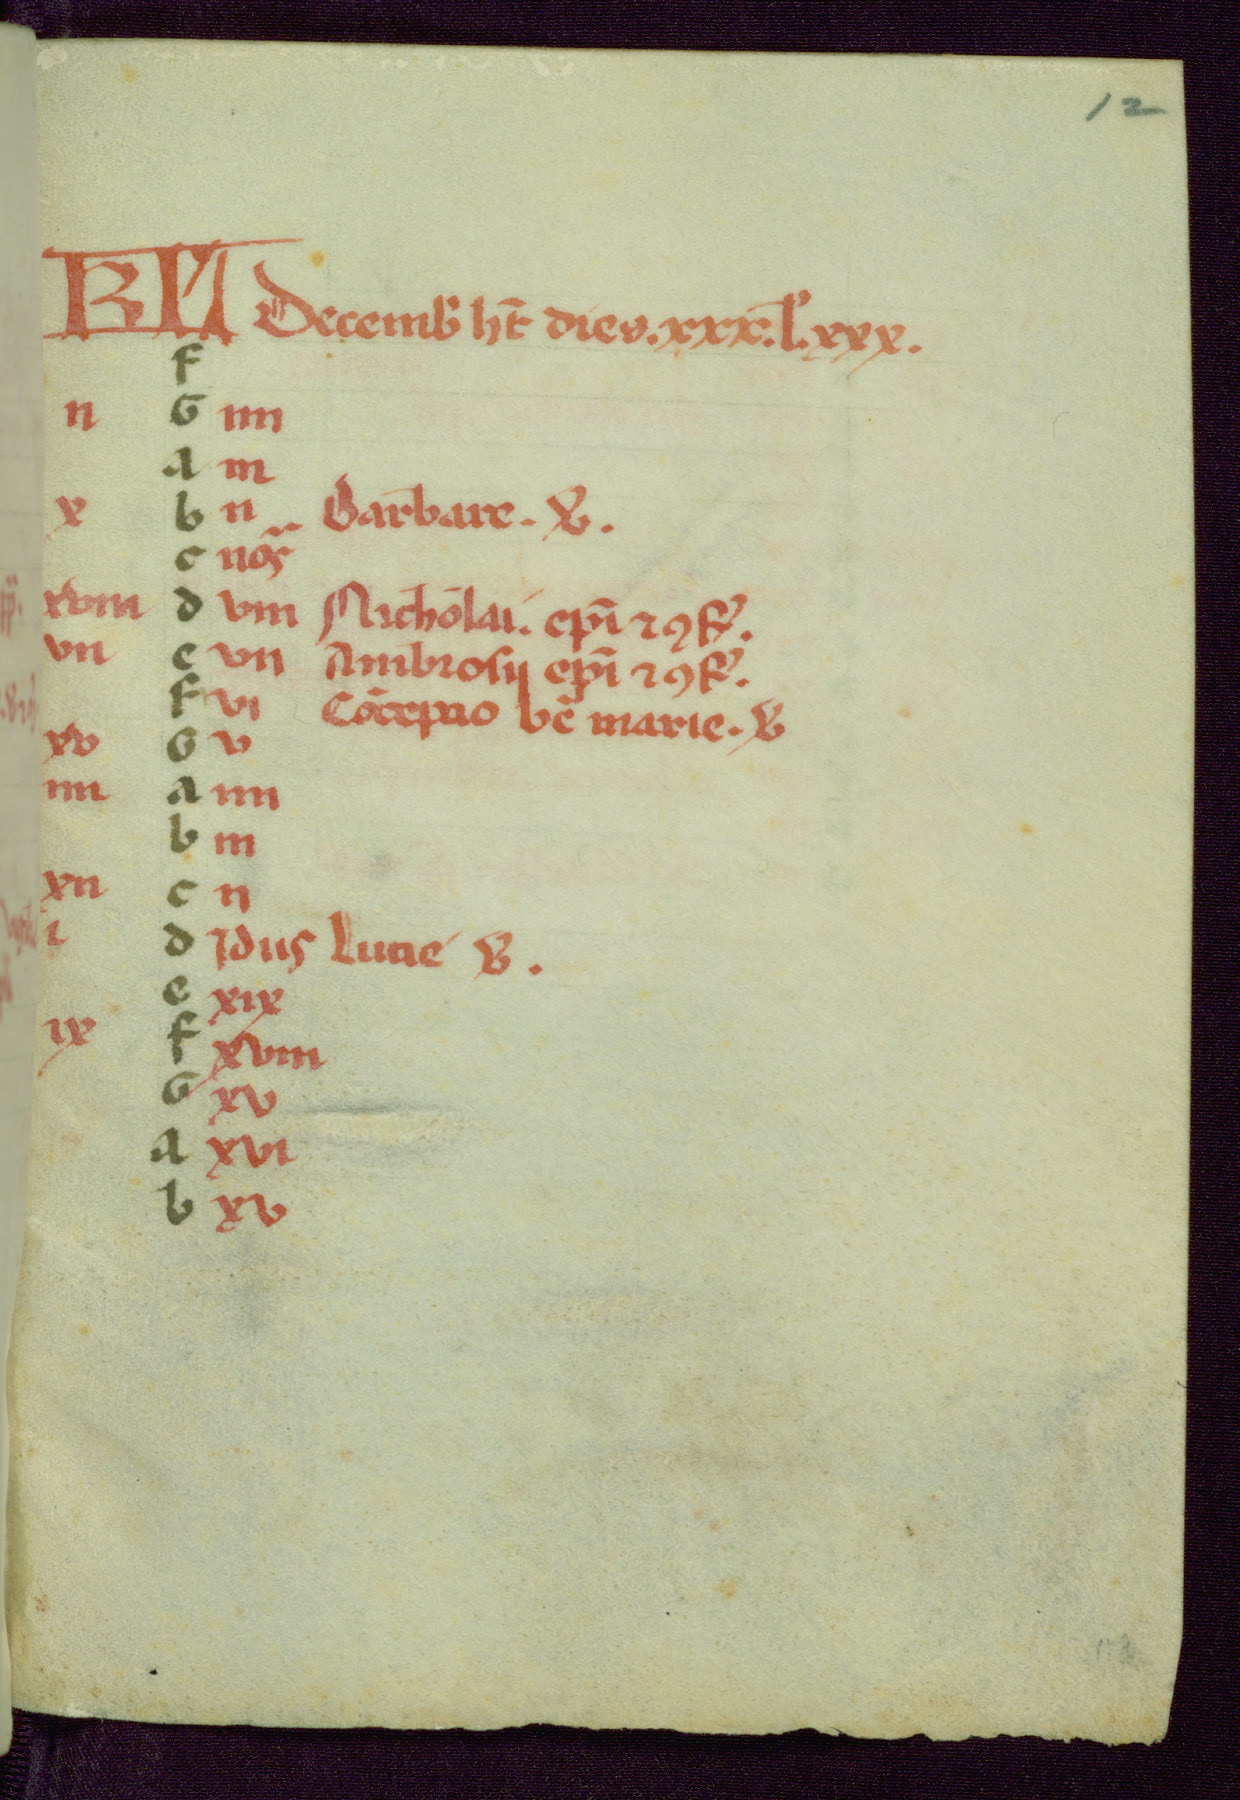 12
KL Decemb ht dies. xxx. l. xxx.
f
ii G iiii
a iii
x b ii Barbare. v.
c nos
xviii d viii Nicholai. epi ⁊ ꝯf.
vii e vii Ambrosij epi ⁊ ꝯf.
f vi Cōcepcio bē marie. v
xv G v
iiii a iiii
b iii
xii c ii
i d Idus Lucie v.
e xix
ix f xviii
G xv
a xvi
b xv